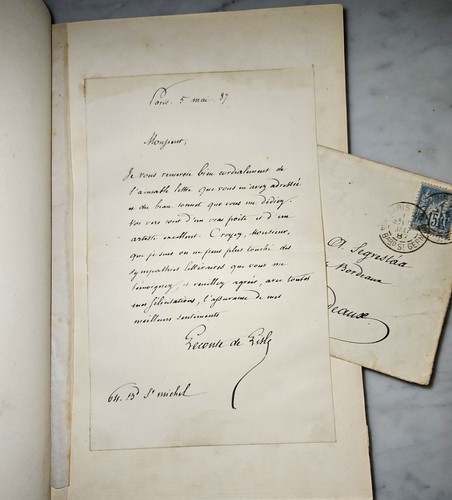 Paris. 5 mai. 87.
Monsieur,
Je vous remercie bien cordialement de
l'aimable lettre que vous m'avez adressée
et du beau sonnet que vous me dédiez.
Vos vers sont d'un vrai poète et d'un
artiste excellent. Croyez, Monsieur,
que je suis on ne peut plus touché des
sympathies littéraires que vous me
témoignez, et veuillez agréer, avec toutes
mes félicitations, l'assurance de mes
meilleurs sentiments
Leconte de Lisle
64. Bd St michel
Bordeaux
deaux
15